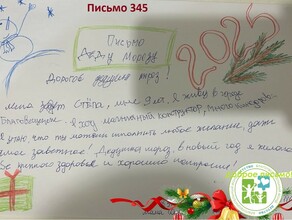 Письмо 345
Письмо
Деду Морозу
2025
Дорогой дедушка мороз!
Меня зовут Стёпа, мне 9 лет, я живу в городе
Благовещенске. Я хочу магнитный конструктор, много
Я знаю, что ты можешь исполнить любое желание, даже
самое заветное! Дедушка мороз, в новый год я желаю
Вам крепкого здоровья и хорошего настроения!